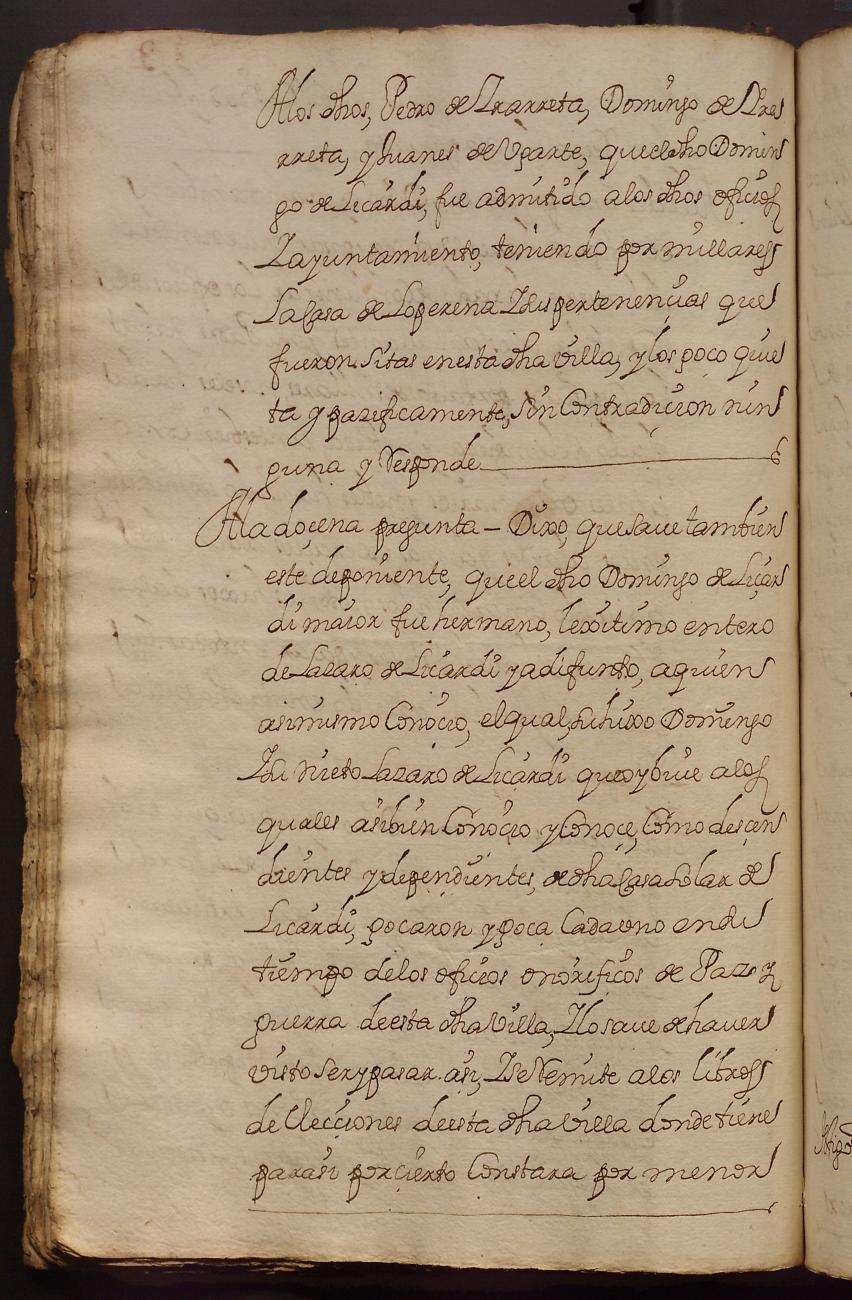 A los dhos, Pedro de Yrarreta, Domingo de Yrea
rreta, y Juanes de Vgarte, que el dho Domin
go de Licardi, fue admitido a los dhos oficios
Y ayuntamiento, teniendo por millares
La Casa de Loperena Y sus pertenencias que
fueron sitas en esta dha villa, y los goço quie
ta y pazificamente, sin Contradicion nin
guna y Responde
A la doçena pregunta – Dixo, que save tambien
este deponiente, que el dho Domingo de Liçar
di maior fue hermano, lexitimo entero
de Lazaro de Licardi ya difunto, a quien
asimismo Conocio, el qual, su hixo Domingo
Y su nieto Lazaro de Licardi que oy bive a los
quales asi bien Conocio y Conoce, Como desçen
dientes y dependientes, de dha Casa Solar de
Licardi, goçaron y goça Cada uno en su
tiempo de los oficios onorificos de Paz y
guerra de esta dha Villa, Y lo save de haver
visto ser y pasar asi, Y se Remite a los libros
de Elecciones de esta dha Villa donde tiene
para si por cierto Constara por menor